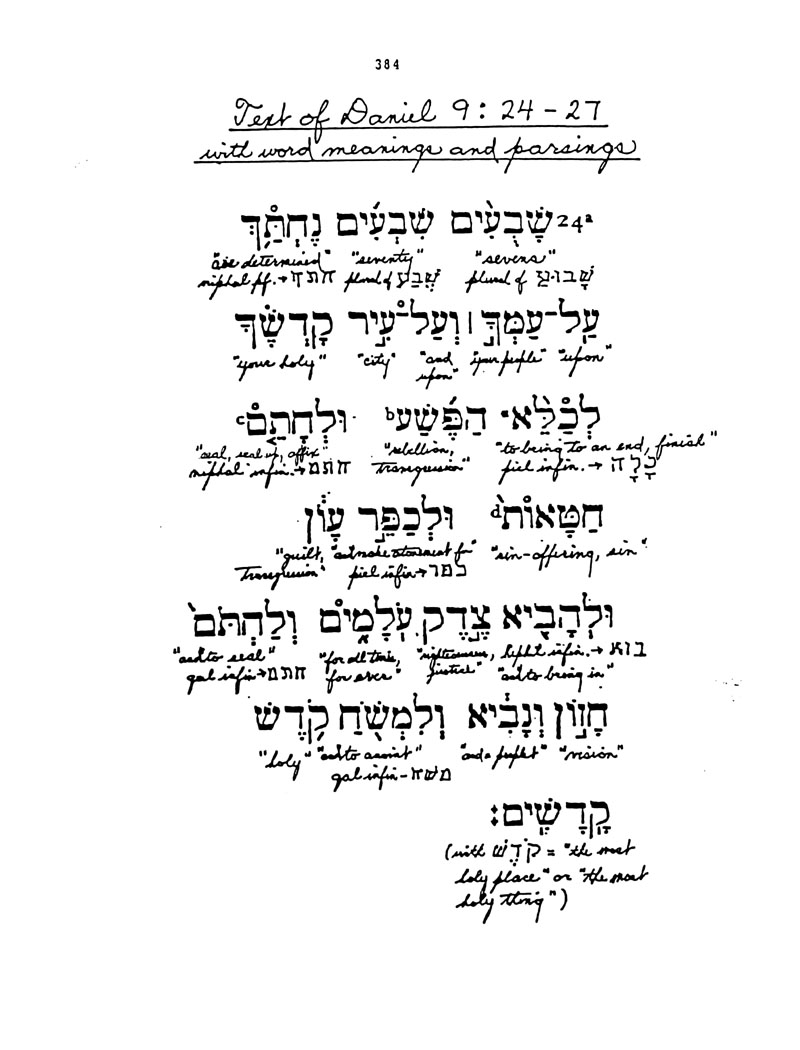 384
Text of Daniel 9:24-27
with word meanings and parsings
24ᵃ שָׁבֻעִ֨ים שִׁבְעִ֜ים נֶחְתַּ֥ךְ
"sevens" "seventy" "are determined"
plural of שָׁבוּעַ plural of שֶׁבַע niphal pf. → חתך
עַֽל־עַמְּךָ֣ ׀ וְעַל־עִ֣יר קָדְשֶׁ֗ךָ
"upon" "your people" "and "city" "your holy"
upon"
לְכַלֵּ֨א הַפֶּ֜שַׁע ᵇ וּלְחָתֵ֤ם ᶜ
"to bring to an end, finish" "rebellion, "seal, seal up, affix"
piel infin. → כָּלָה transgression" niphal infin. → חתם
חַטָּאוֹת֙ ᵈ וּלְכַפֵּ֣ר עָוֺ֔ן
"sin-offering, sin" "and make atonement for" "guilt,
piel infin → כפר transgression"
וּלְהָבִ֖יא צֶ֣דֶק עֹֽלָמִ֑ים וְלַחְתֹּם֙
hiphil infin. → בוא "righteousness, "for all time, "and to seal"
"and to bring in" justice" for ever" qal infin → חתם
חָז֣וֹן וְנָבִ֔יא וְלִמְשֹׁ֖חַ קֹ֥דֶשׁ
"vision" "and a prophet" "and to anoint" "holy"
qal infin - משׁח
קָֽדָשִֽׁים׃
(with קֹדֶשׁ = "the most
holy place" or "the most
holy thing")